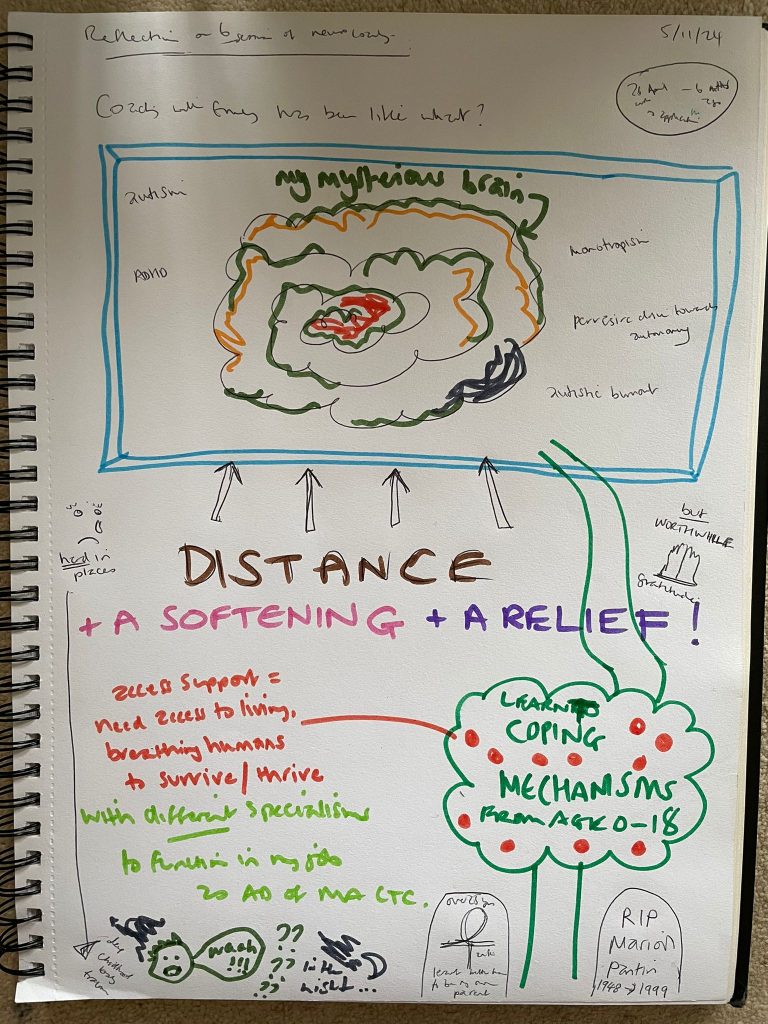 Reflection on 6 sessions of neuro
5/11/24
28 April – 6 months
ago
application
has been like what?
my mysterious brain
autism
ADHD
monotropism
pervasive drive towards
autonomy
autistic burnout
hard in
places
but
WORTHWHILE
gratitude
DISTANCE
+ A SOFTENING + A RELIEF!
access support =
need access to living,
breathing humans
to survive/thrive
with different specialisms
to function in my job
as AD of MA CTC.
LEARNED
COPING
MECHANISMS
FROM AGE 0-18
deep
childhood
trauma
waah
!!!
??
??
??
in the
night...
parent
RIP
Marion
Pantin
1948 → 1999